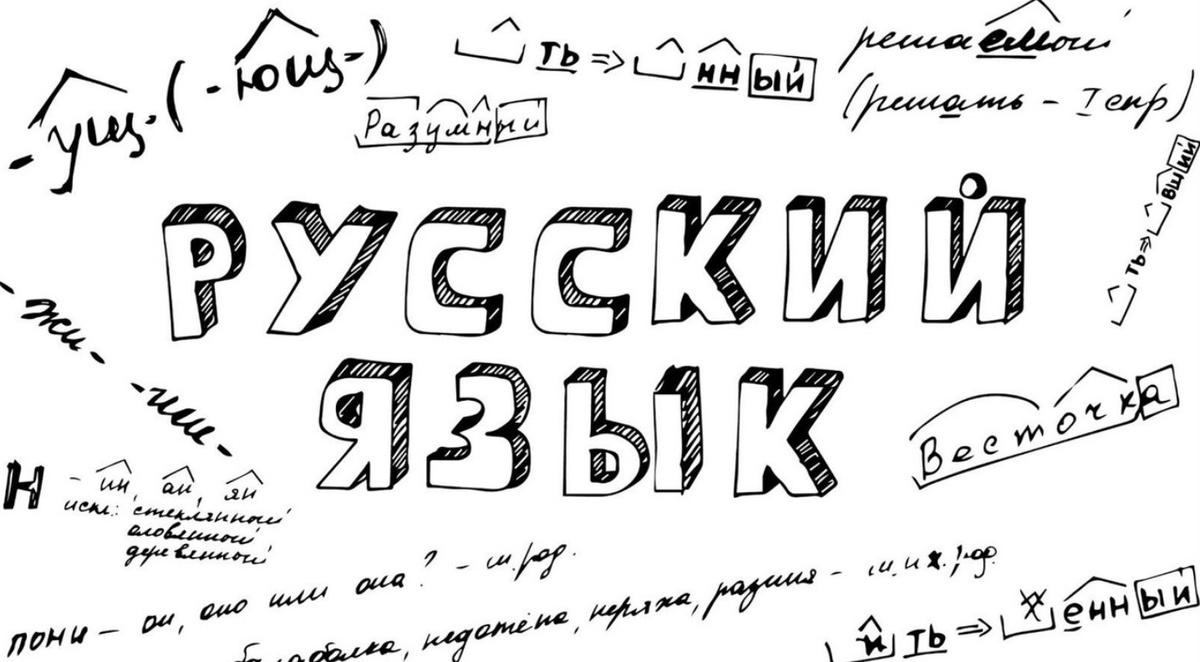 -ущ- (-ющ-)
ть ⇒ нный
Разумный
решаемый
(решать - I спр)
ть ⇒ вший
РУССКИЙ
ЯЗЫК
- жи -
- ши -
Весточка
н - ин, ан, ян
искл: стеклянный
оловянный
деревянный
пони - он, оно или она? - м.род.
недотёпа, неряха, разиня - м. и ж.
и ть ⇒ енный